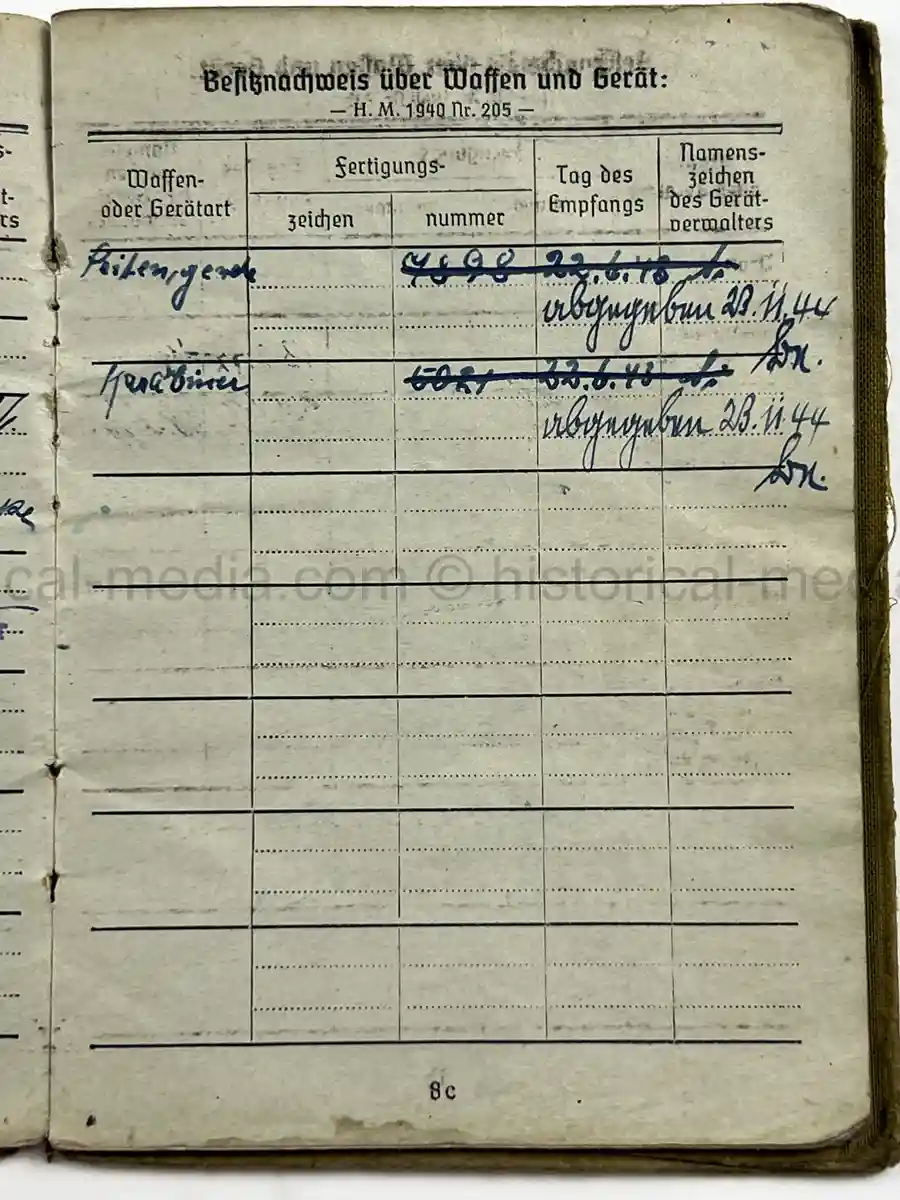 Besitznachweis über Waffen und Gerät:
— H. M. 1940 Nr. 205 —
Waffen-
oder Gerätart
Fertigungs-
zeichen
nummer
Tag des
Empfangs
Namens-
zeichen
des Gerät-
verwalters
7898 22.6.43
abgegeben 23.11.44
Karabiner 22.6.43
abgegeben 23.11.44
cal-media.com © historical-media
8c